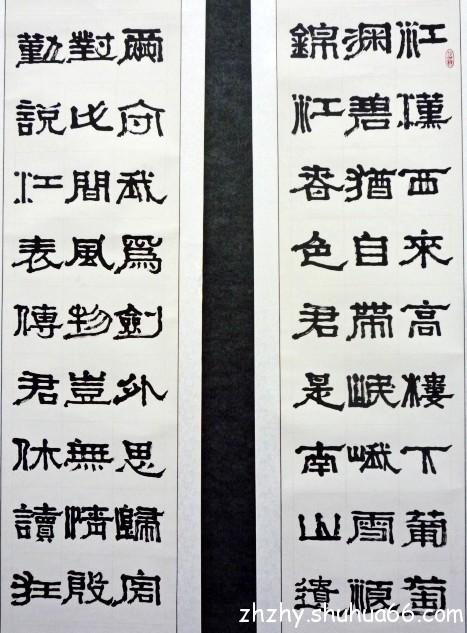 江漢西來高樓下葡萄
深碧猶自帶岷峨雪浪
錦江春色君是南山遺
愛守我為劍外思歸客
對此間風物豈無情殷
勤說江表傳君休讀狂
zhzhy.shuhua66.com